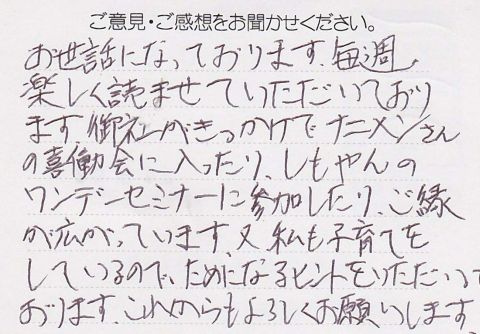 ご意見・ご感想をお聞かせください。
お世話になっております。毎週、
楽しく読ませていただいており
ます。御社がきっかけでナニメンさん
の喜働会に入ったり、しもやんの
ワンデーセミナーに参加したり、ご縁
が広がっています。又、私も子育てを
しているので、ためになるヒントをいただいて
おります。これからもよろしくお願いします